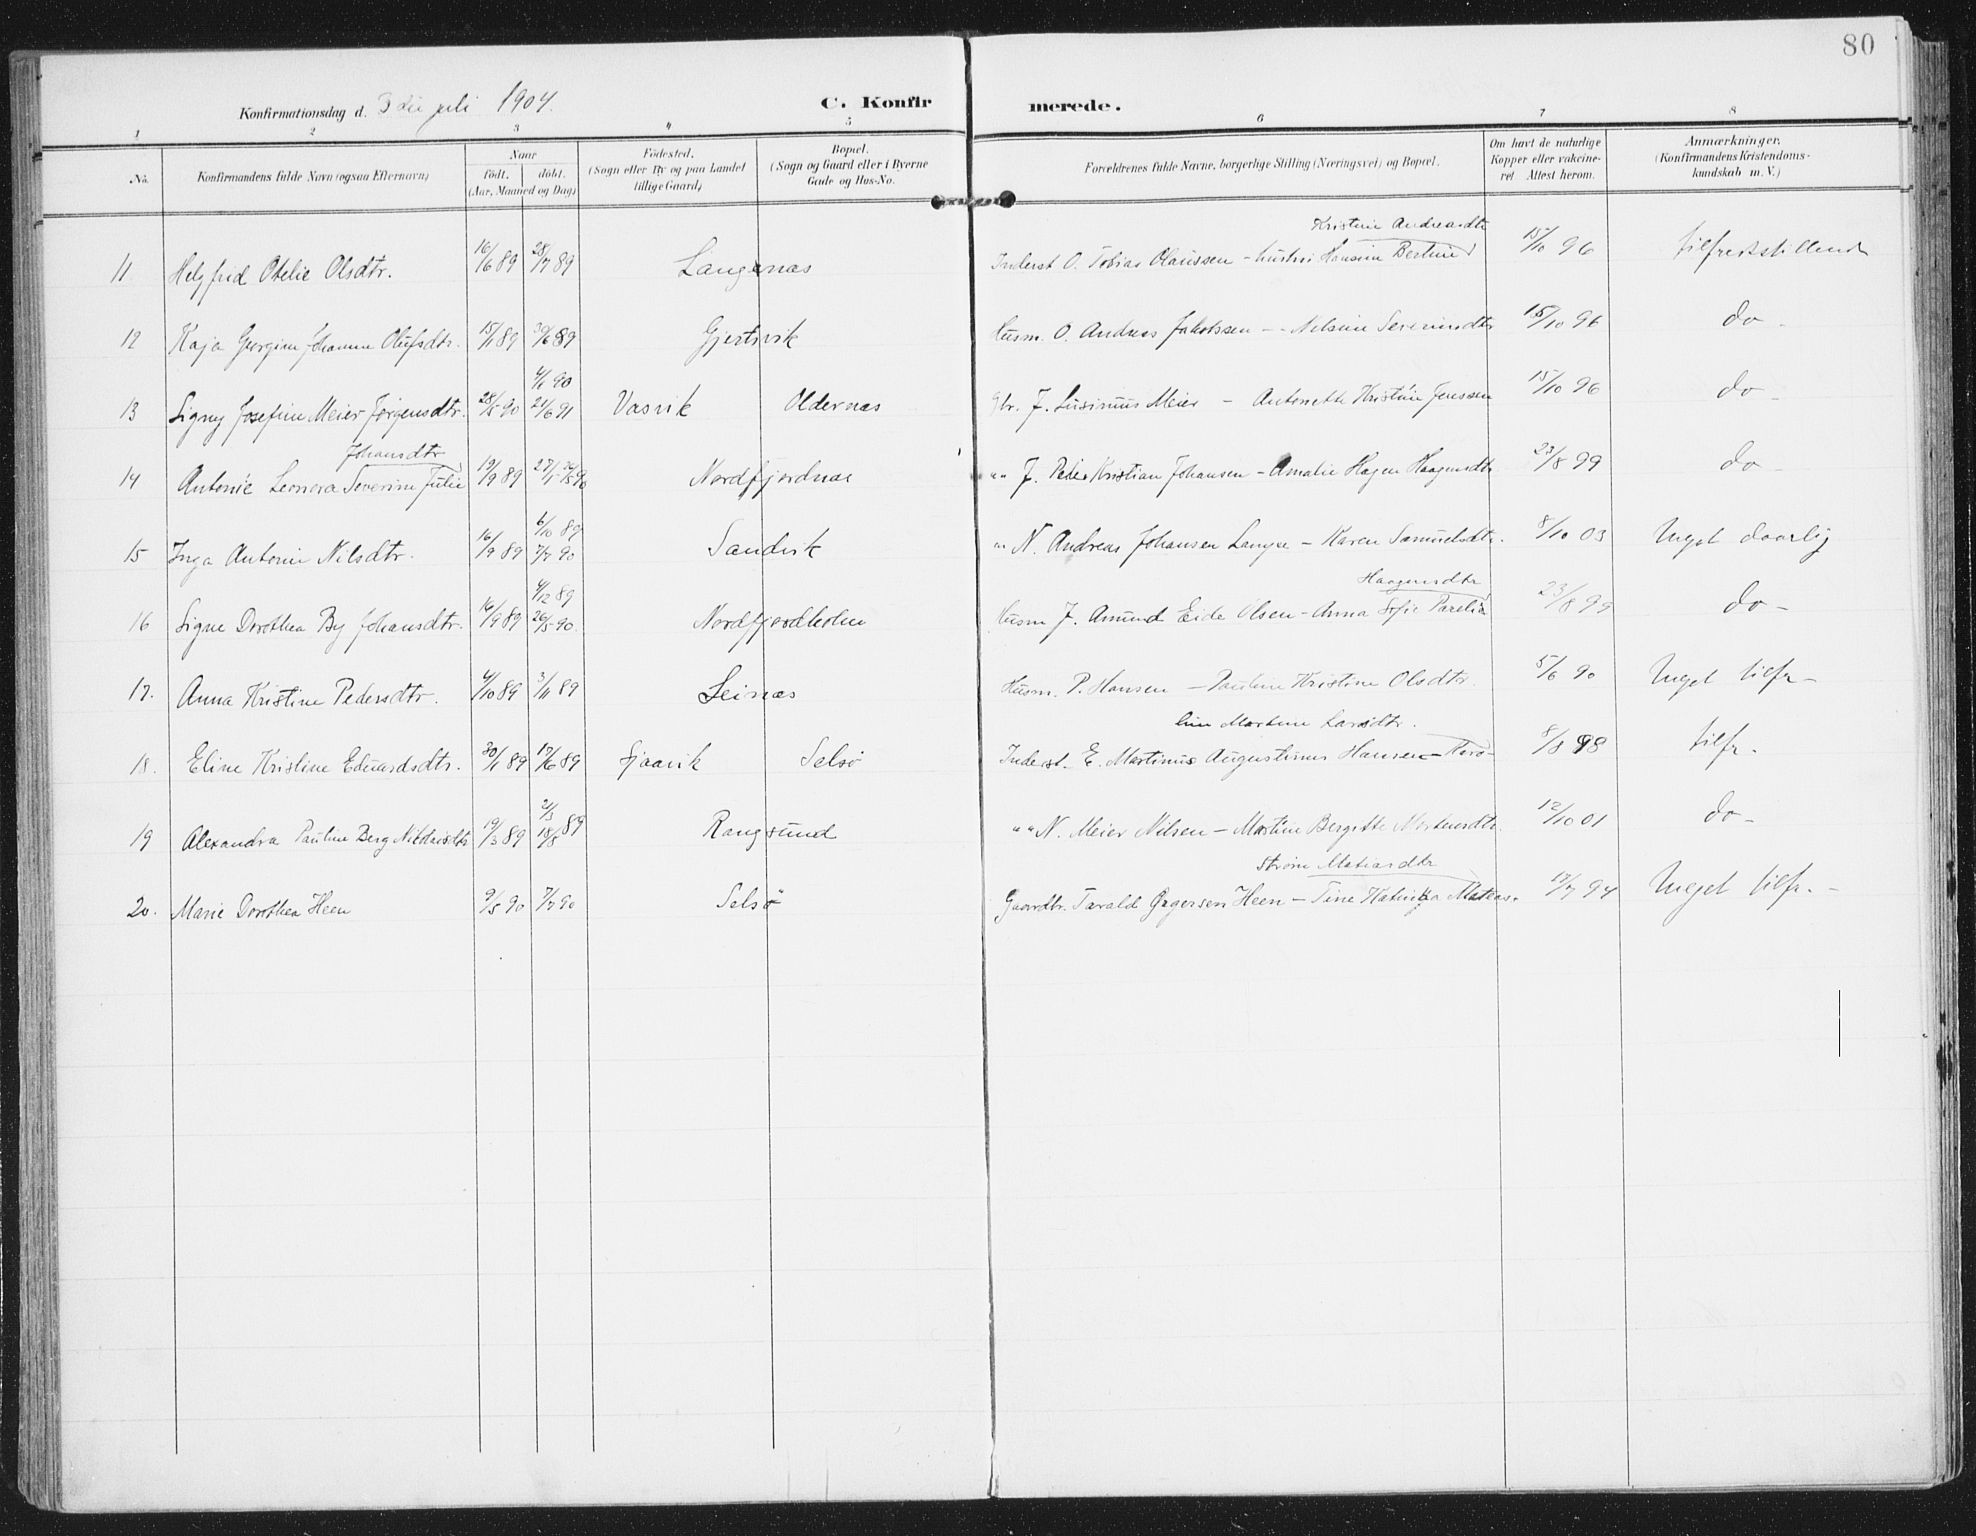 80
Konfirmationsdag d. 3die juli 1904. C. Konfirmerede.
1 2 3 4 5 6 7 8
No. Konfirmandens fulde Navn (ogsaa Efternavn) Naar født. døbt. (Aar, Maaned og Dag) Fødested. (Sogn eller By og paa Landet tillige Gaard) Bopæl. (Sogn og Gaard eller i Byerne Gade og Hus-No. Forældrenes fulde Navne, borgerlige Stilling (Næringsvei) og Bopæl. Om havt de naturlige Kopper eller vakcineret Attest herom. Anmærkninger. (Konfirmandens Kristendomskundskab m. V.)
Kristine Andreasdtr
11 Helgfrid Otelie Olsdtr. 16/6 89 28/7 89 Langenæs Inderst O. Tobias Olaussen - hustru Hansine Bertine 15/10 96 tilfredsstillend
12 Kaja Georgine Johanne Olufsdtr. 15/1 89 30/6 89 Gjertsvik Husm. O. Andreas Jakobssen - - Nelsine Severinsdtr 15/10 96 do -
4/6 90
13 Signy Josefine Meier Jørgensdtr. 28/5 90 21/6 91 Vasvik Oldernæs Gbr. J. Lusimus Meier - Antonette Kristine Jenssen 15/10 96 do -
Johansdtr
14 Antonie Leonora Severine Julie 19/9 89 27/1 - 26/5 90 Nordfjordnæs "" J. Peder Kristian Johansen - Amalie Hagen Haagensdtr 23/8 99 do -
6/10 89
15 Inga Antonie Nilsdtr. 16/9 89 7/7 90 Sandvik "" N. Andreas Johansen Lange - Karen Samuelsdtr. 8/10 03 Meget daarlig
4/12 89 Haagensdtr
16 Signe Dorothea By Johansdtr. 16/9 89 26/5 90. Nordfjordholm Husm J. Amund Eide Olsen - Anna Sofie Parelia 23/8 99 do -
17. Anna Kristine Pedersdtr. 4/10 89 3/11 89 Leinæs Husm. P. Hansen - Pauline Kristine Olsdtr. 5/6 90 Meget tilfr -
line Martine Larsdtr.
18. Eline Kristine Eduardsdtr. 30/1 89 17/6 89 Sjaavik Selsö Inderst. E. Martinus Augustinus Hansen - Karo- 8/8 98 tilfr.
21/3
19 Alexandra Pauline Berg Nikolaisdtr 19/3 89 18/8 89 Rangsund "" N. Meier Nilsen - Martine Bergitte Mortensdtr. 12/10 01 do -
Strøm Matiasdtr
20. Marie Dorothea Heen 9/5 90 7/7 90 Selsö Gaardbr. Tarald Heen - Tine Katinka Mateas- 17/7 94 Meget tilfr. -